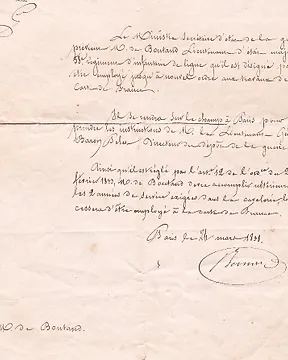 Le Ministre Secrétaire d'état de la gue
prévient M. de Boutaud Lieutenant d'état maj
55e régiment d'infanterie de ligne qu'il est désigné po
être employé jusqu'à nouvel ordre aux travaux de
Carte de France.
Il se rendra sur le champ à Paris pour
prendre les instructions de M. le Lieutenant Gé
Baron Pelet Directeur du dépôt de la guerre
Ainsi qu'il est réglé par l'art. 12 de l' du 2
février 1833, M. de Boutaud devra accomplir ultérieure
les 2 années de service exigées dans la cavalerie l
cessera d'être employé à la carte de France.
Paris, le 21 mars 1838.
Bernard
M. de Boutaud.